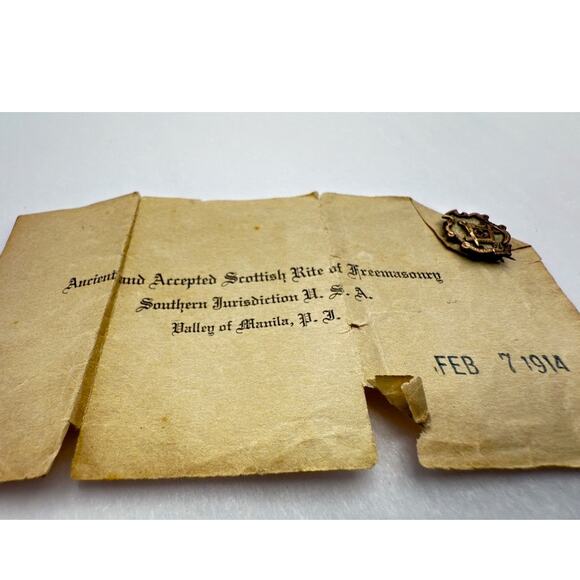 Ancient and Accepted Scottish Rite of Freemasonry
Southern Jurisdiction U. S. A.
Valley of Manila, P. I.
FEB 7 1914